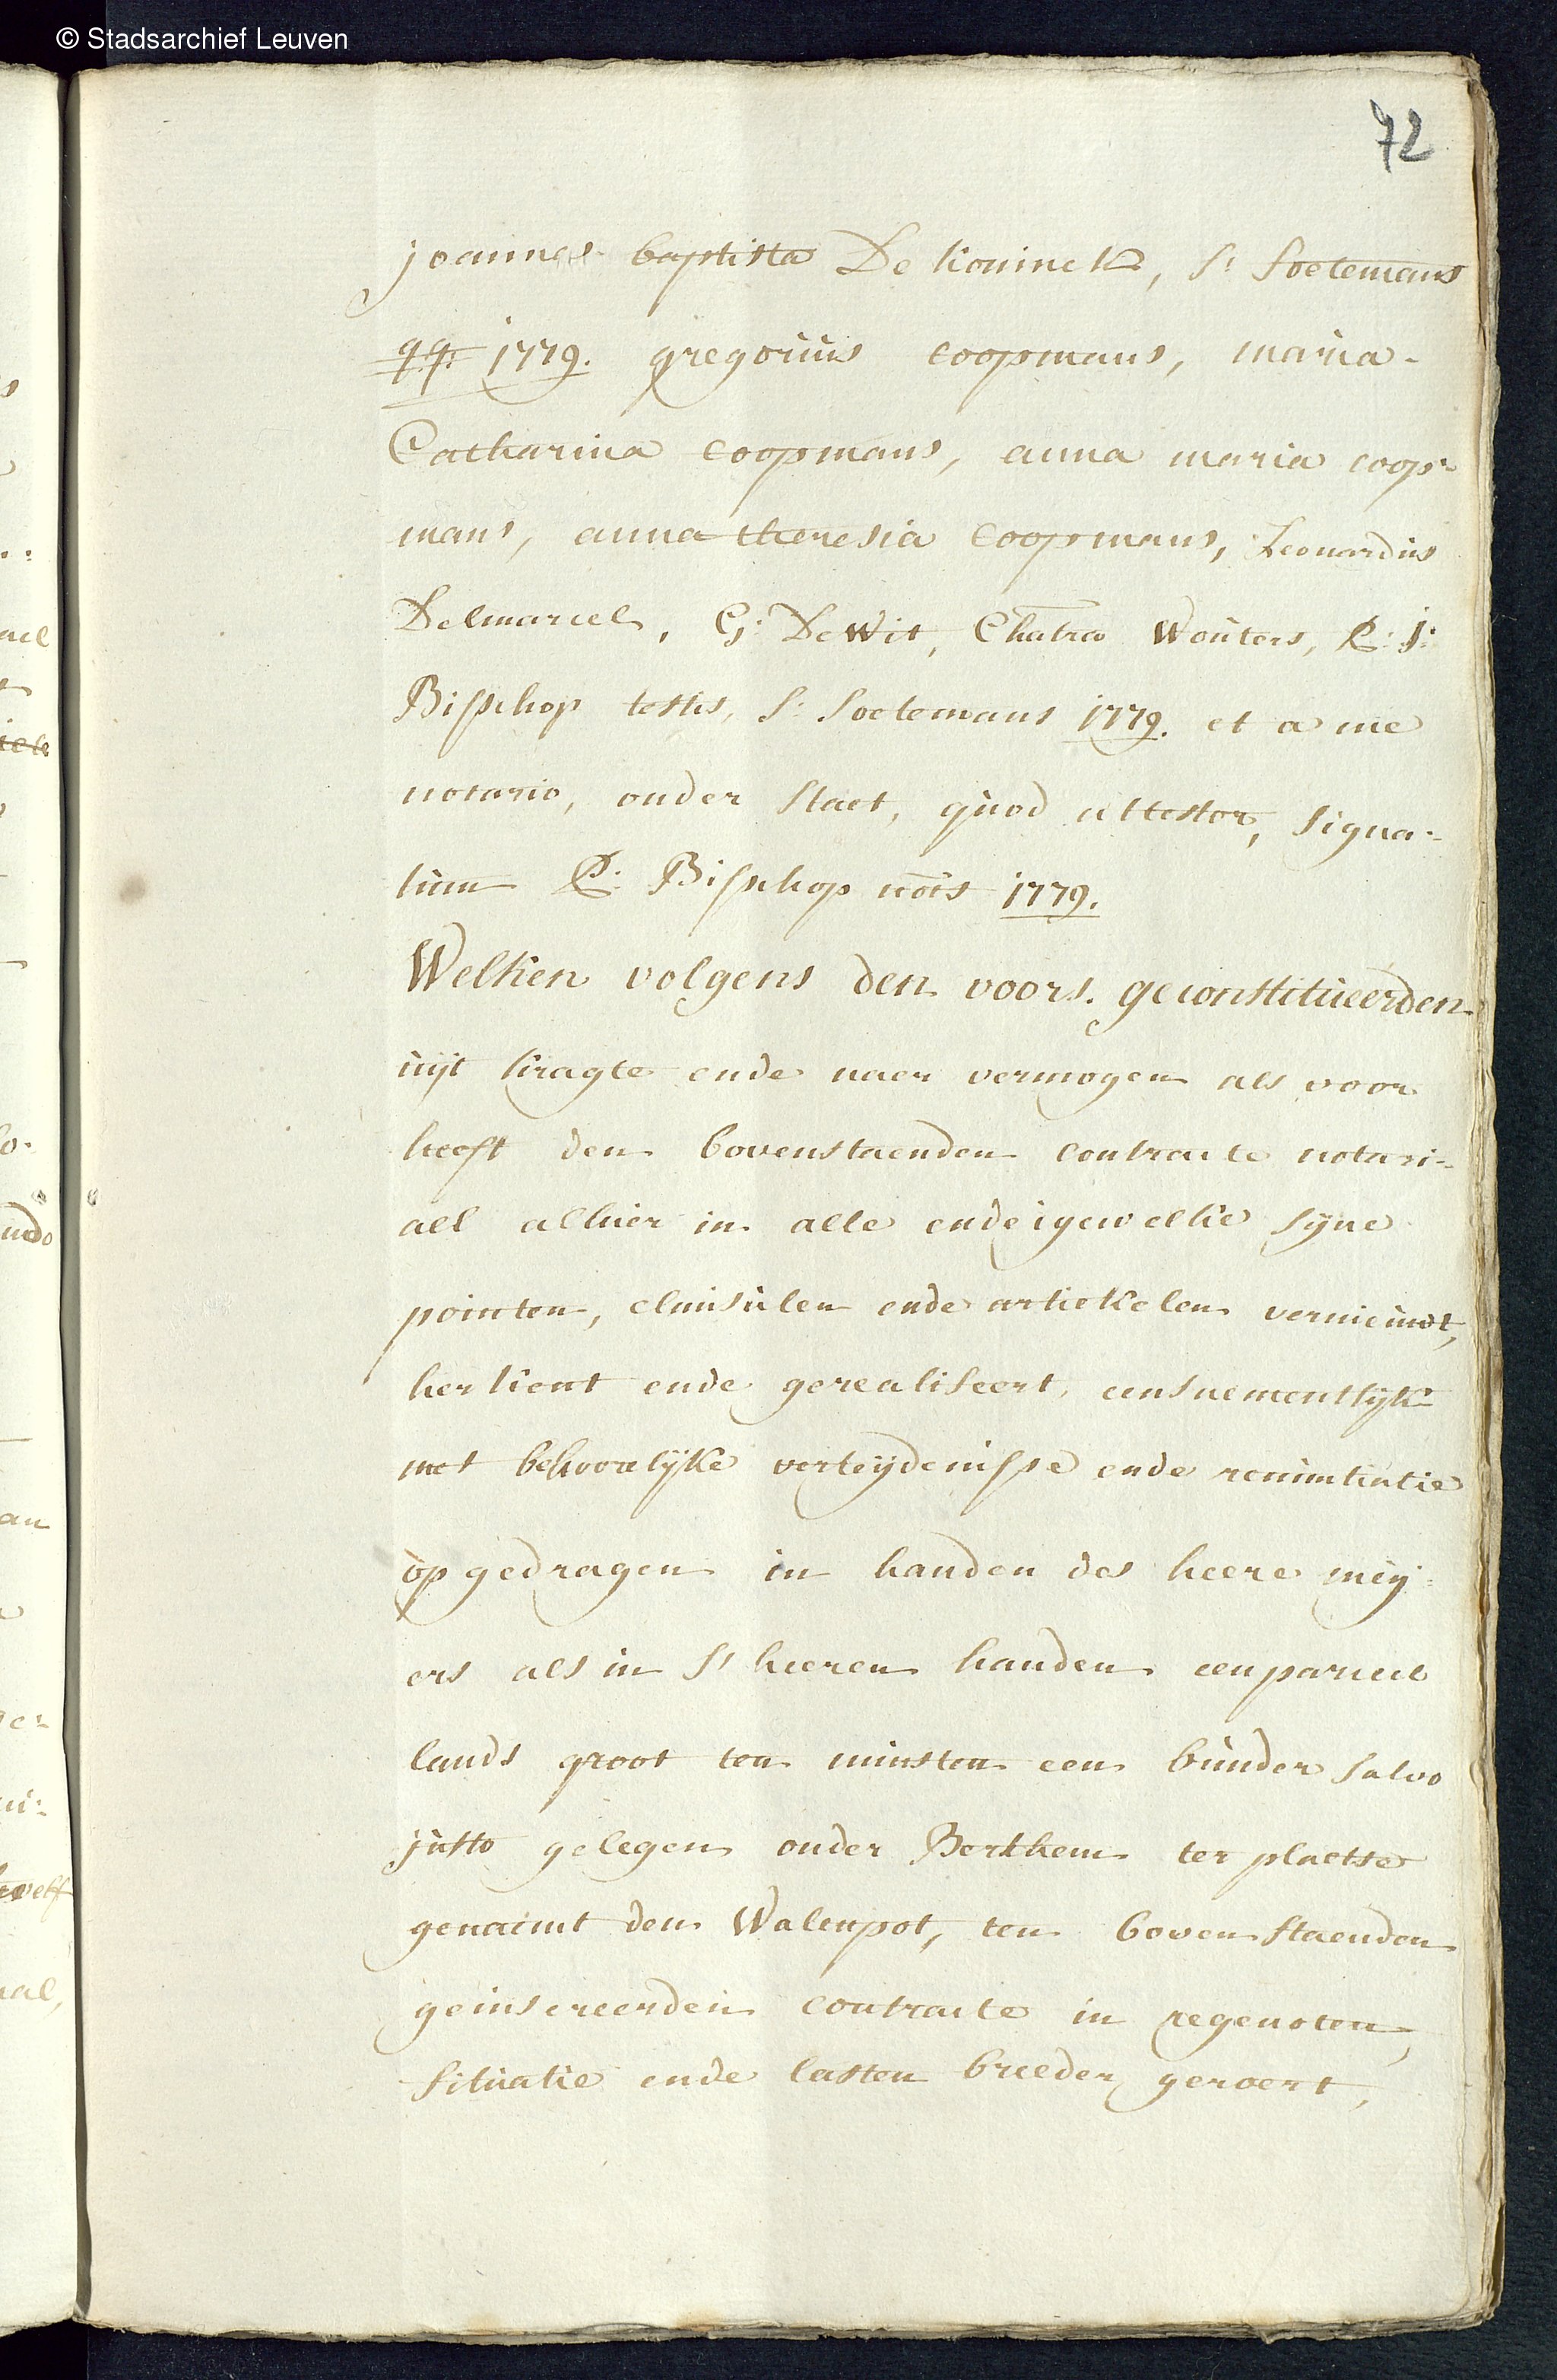 © Stadsarchief Leuven
72
joannes baptista De koninck, S: Soetemans
qq: 1779. gregorius coopmans, maria-
Catharina coopmans, anna maria coop-
mans, anna theresia coopmans, Leonardus
Delmarcel, G: De Wit, Chatra Wouters, P: J:
Bisschop testes, S: Soetemans 1779. et a me
notario, onder staet, quod attestor, signa-
tum P: Bisschop nots 1779.
Welken volgens den voors. geconstitueerden
uijt kragte ende naer vermogen als voor
heeft den bovenstaenden contracte notari-
ael alhier in alle ende igewelke syne
pointen, clausulen ende artiekelen vernieuwt,
herkent ende gerealiseert, ensnementlijk
met behoorelijke verteijdenisse ende renuntiatie
op gedragen in handen des heere meij-
ers als in S' heeren handen een parceel
lands groot ten minsten een bunder salvo
justo gelegen onder Berthem ter plaetse
genaemt den Walenpot, ten bovenstaenden
geinsereerden contracte in regenoten,
situatie ende lasten breeder geroert,